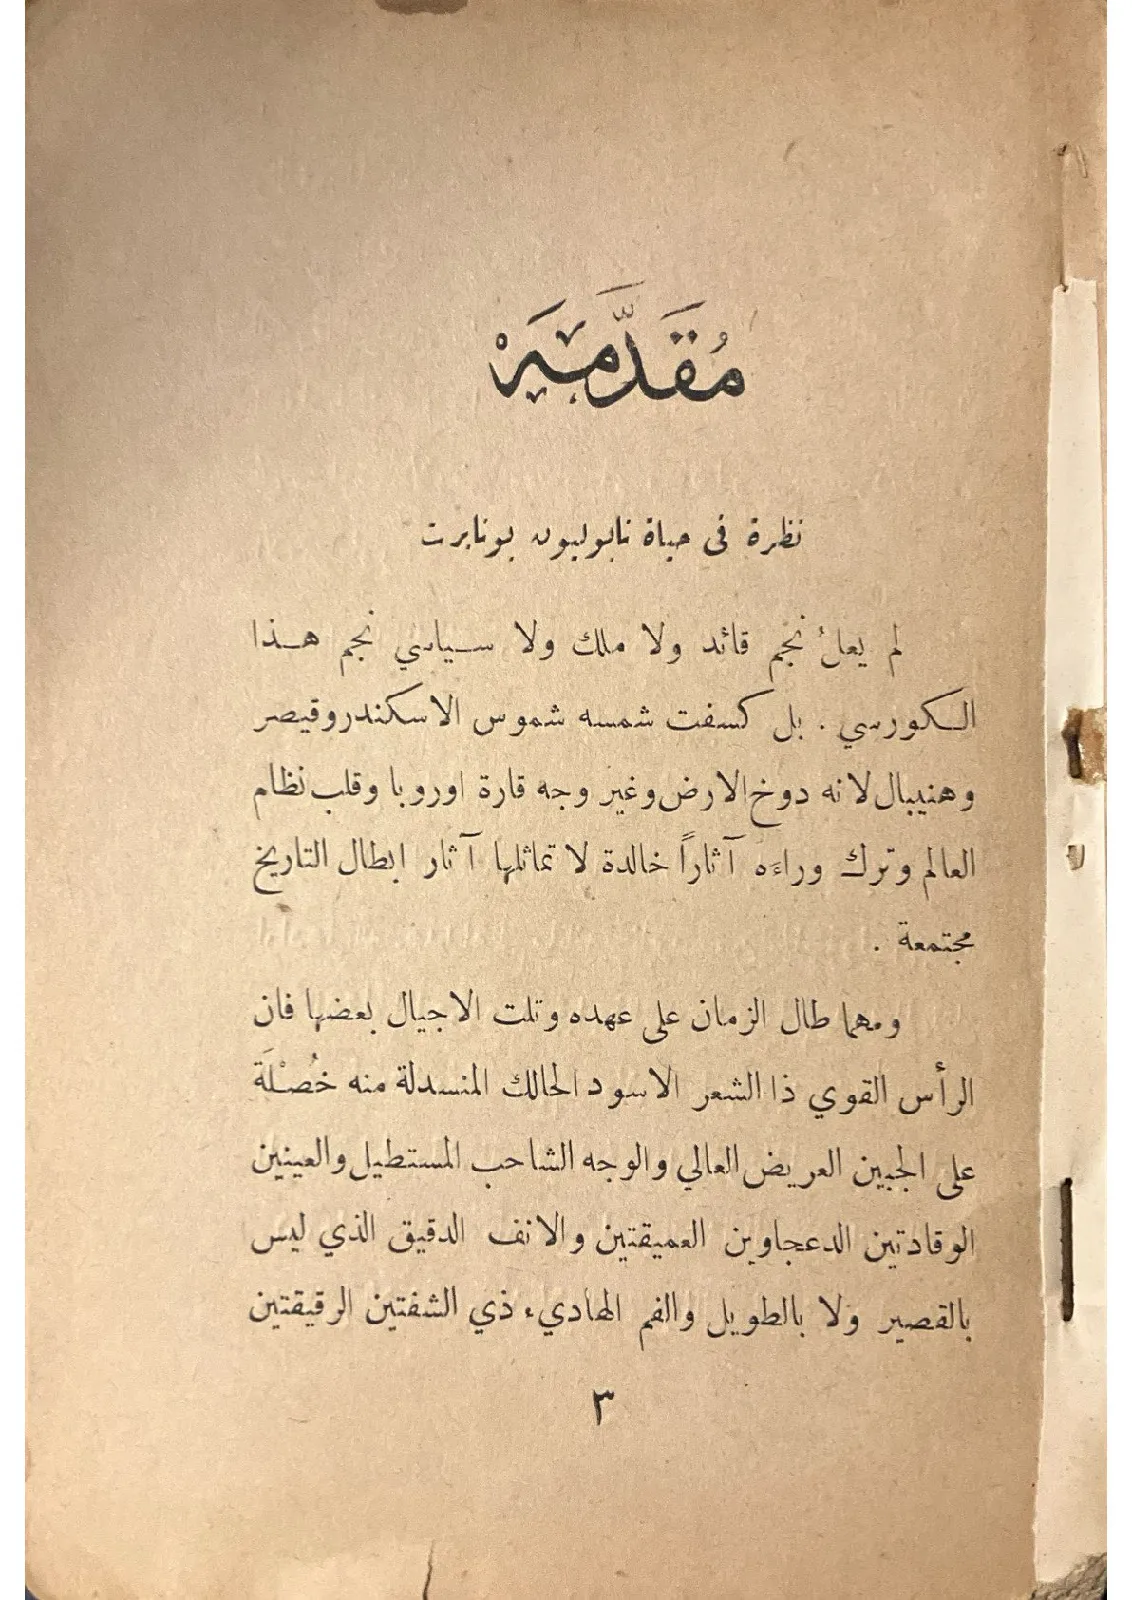 مُقَدَّمَة
نظرة في حياة نابوليون بونابرت
لم يعلُ نجم قائد ولا ملك ولا سياسي نجم هذا
الكورسي . بل كسفت شمسه شموس الاسكندر وقيصر
وهنيبال لانه دوخ الارض وغير وجه قارة اوروبا وقلب نظام
العالم وترك وراءه آثاراً خالدة لا تماثلها آثار ابطال التاريخ
مجتمعة .
ومهما طال الزمان على عهده وتلت الاجيال بعضها فان
الرأس القوي ذا الشعر الاسود الحالك المنسدلة منه خُصْلَة
على الجبين العريض العالي والوجه الشاحب المستطيل والعينين
الوقادتين الدعجاوين العميقتين والانف الدقيق الذي ليس
بالقصير ولا بالطويل والفم الهاديء ذي الشفتين الرقيقتين
٣